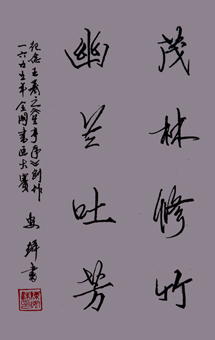 茂林修竹
幽兰吐芳
纪念王羲之《兰亭序》创作
一六五五年全国书画大赛